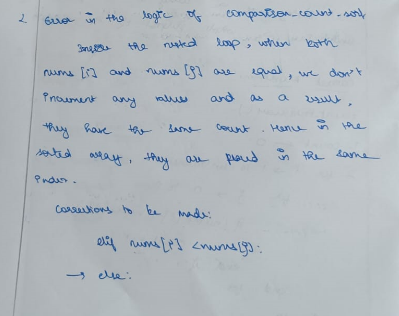 2 Error in the logic of comparison-count-sort
Inside the nested loop, when both
nums[i] and nums[j] are equal, we don't
increment any values and as a result,
they have the same count. Hence in the
sorted array, they are placed in the same
index.
Corrections to be made:
elif nums[i] < nums[j]:
→ else: